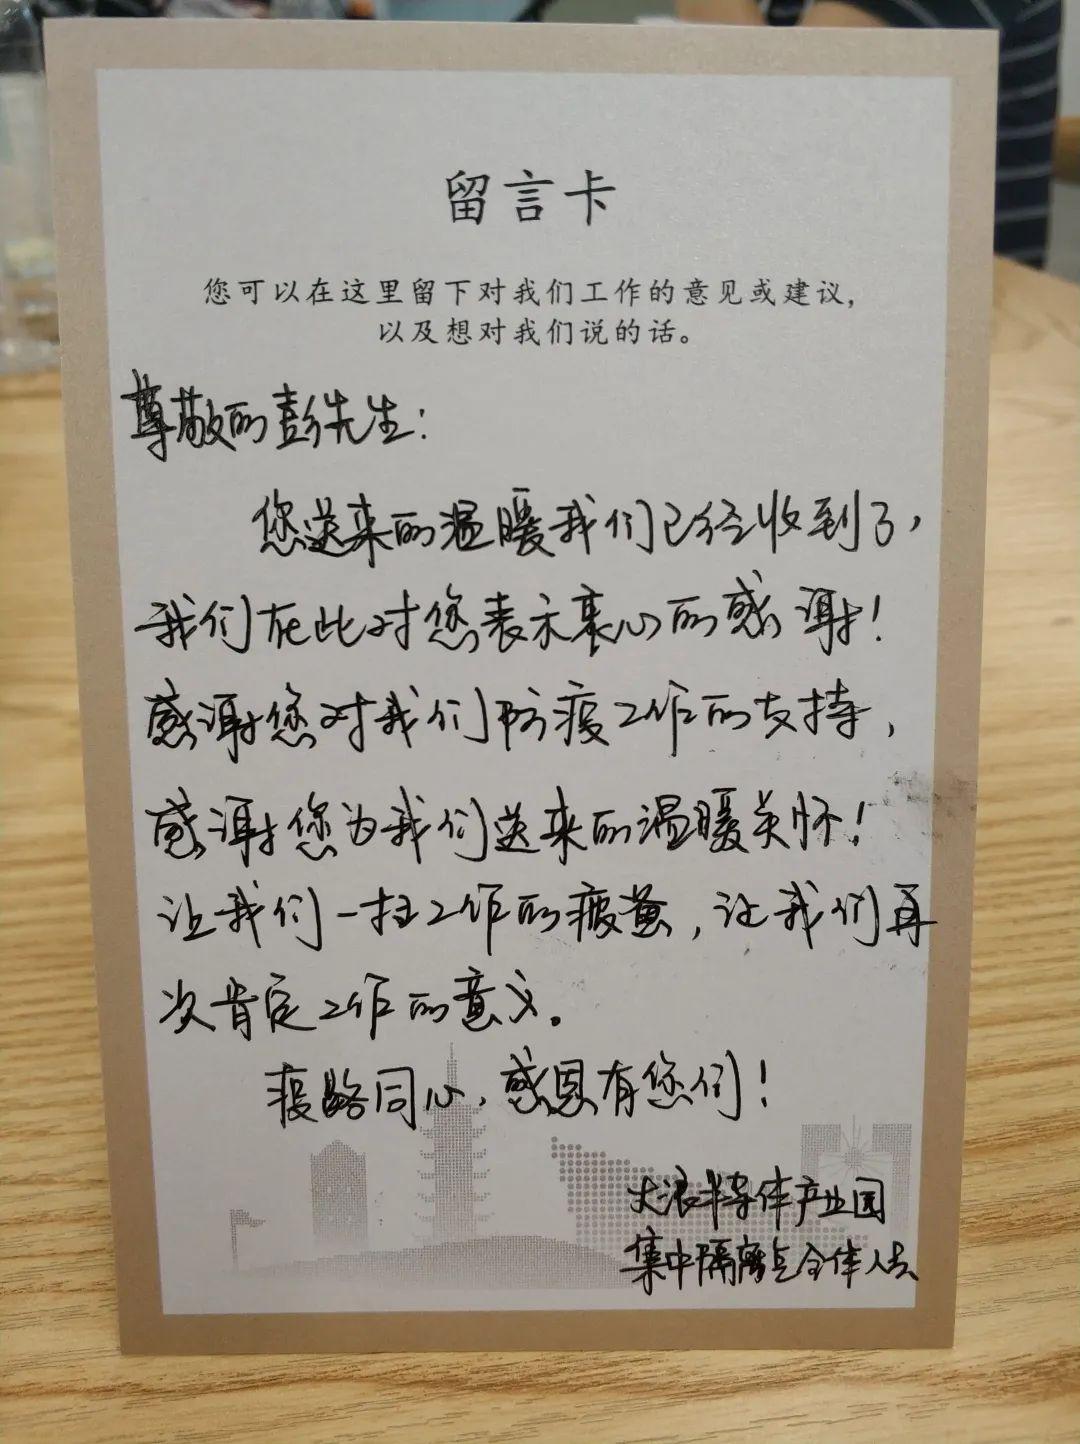 留言卡
您可以在这里留下对我们工作的意见或建议，
以及想对我们说的话。
尊敬的彭先生：
您送来的温暖我们已经收到了，
我们在此对您表示衷心的感谢！
感谢您对我们防疫工作的支持，
感谢您为我们送来的温暖关怀！
让我们一扫工作的疲惫，让我们再
次肯定工作的意义。
疫路同心，感恩有您们！
大浪半导体产业园
集中隔离点全体人员